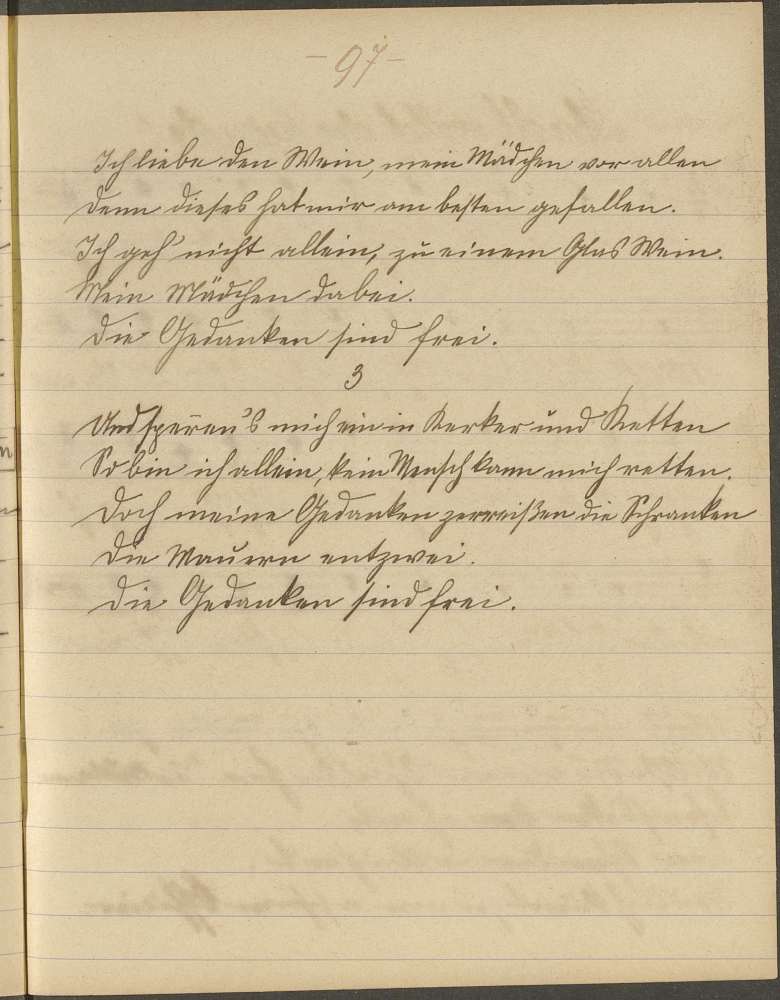 - 97 -
Ich liebe den Wein, mein Mädchen vor allen
Denn dieses hat mir am besten gefallen.
Ich geh' nicht allein, zu einem Glas Wein.
Mein Mädchen dabei.
Die Gedanken sind frei.
3
Und sperren's mich ein in Kerker und Ketten
So bin ich allein, kein Mensch kann mich retten.
Doch meine Gedanken zerreißen die Schranken
Die Mauern entzwei.
Die Gedanken sind frei.